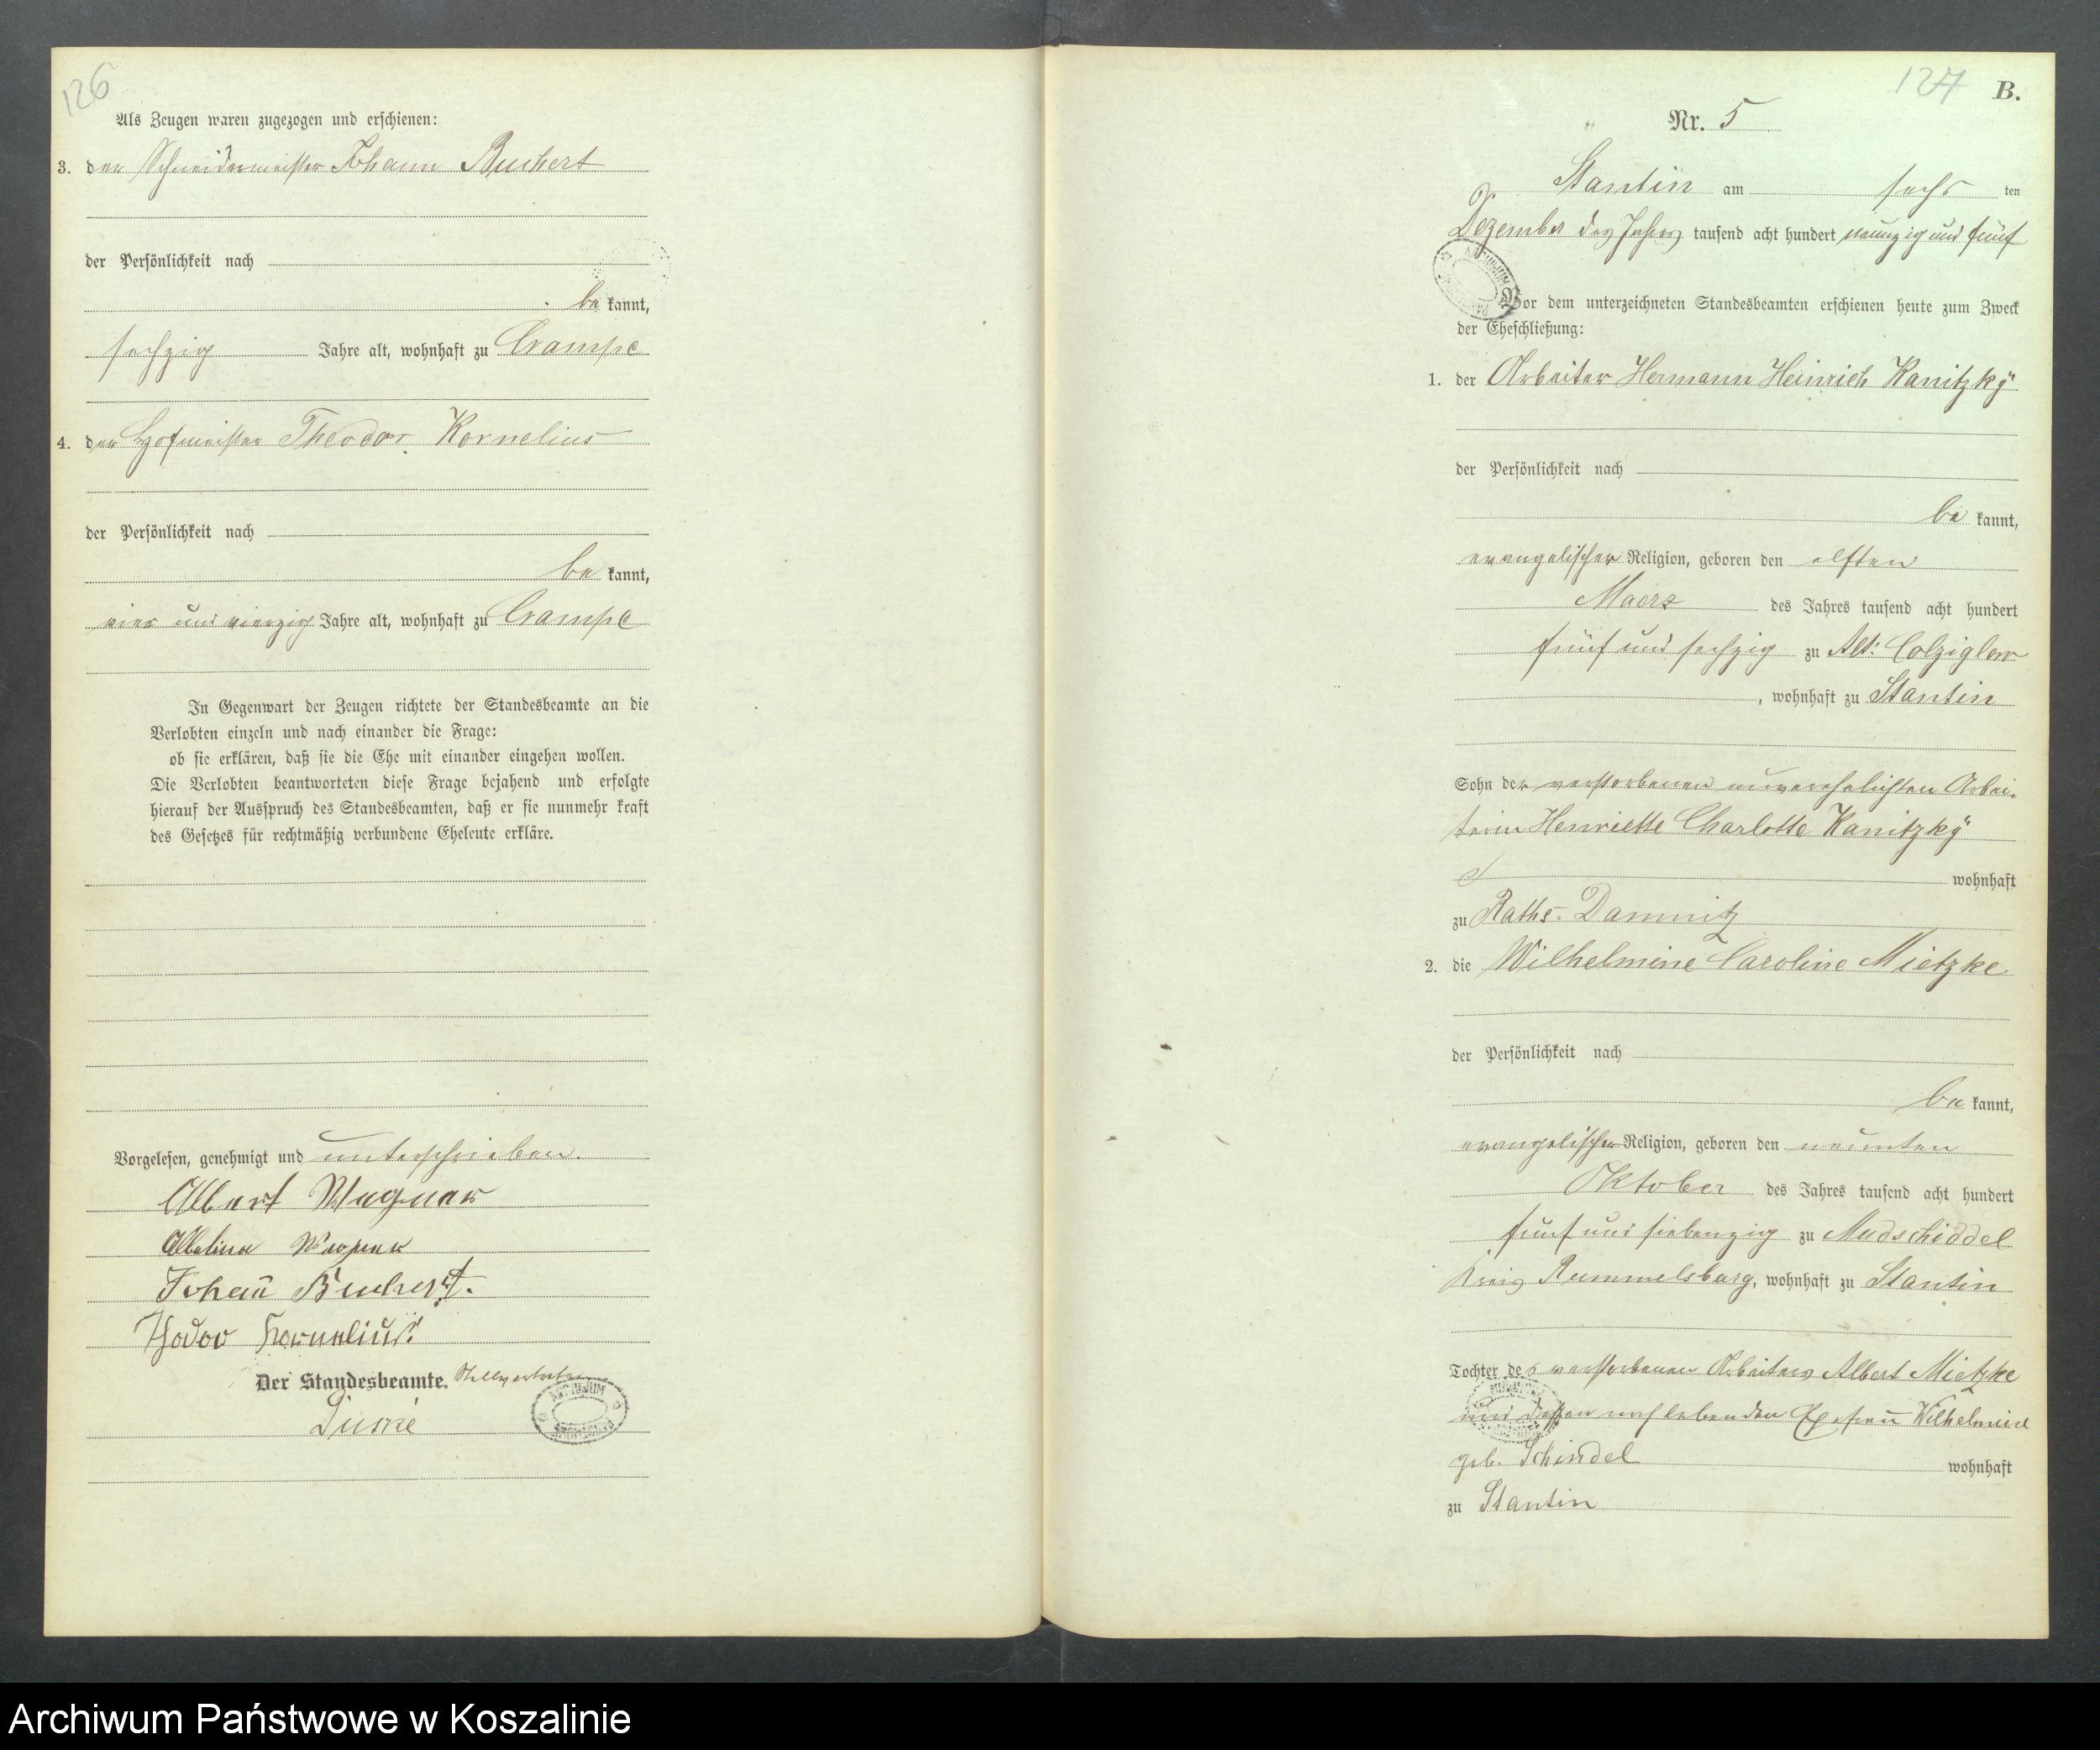 126
Als Zeugen waren zugezogen und erschienen:
3. der Schneidermeister Johann Buchert
der Persönlichkeit nach
be kannt,
sechzig Jahre alt, wohnhaft zu Crampe
4. der Hofmeister Theodor Kornelius
der Persönlichkeit nach
be kannt,
vier und vierzig Jahre alt, wohnhaft zu Crampe
In Gegenwart der Zeugen richtete der Standesbeamte an die
Verlobten einzeln und nach einander die Frage:
ob sie erklären, daß sie die Ehe mit einander eingehen wollen.
Die Verlobten beantworteten diese Frage bejahend und erfolgte
hierauf der Ausspruch des Standesbeamten, daß er sie nunmehr kraft
des Gesetzes für rechtmäßig verbundene Eheleute erkläre.
Vorgelesen, genehmigt und unterschrieben.
Albert Wagner
Albertine Wagner
Johann Buchert.
Thodor Kornelius.
Der Standesbeamte. Stellvertreter
127 B.
Nr. 5
Stantin am sechs ten
Dezember des Jahres tausend acht hundert neunzig und fünf
Vor dem unterzeichneten Standesbeamten erschienen heute zum Zweck
der Eheschließung:
1. der Arbeiter Hermann Heinrich Kanitzky
der Persönlichkeit nach
be kannt,
evangelischer Religion, geboren den elften
Maerz des Jahres tausend acht hundert
fünf und sechzig zu Alt: Colziglow
, wohnhaft zu Stantin
Sohn der verstorbenen unverehelichten Arbei-
terin Henriette Charlotte Kanitzky
wohnhaft
zu Raths-Damnitz
2. die Wilhelmine Caroline Mietzke
der Persönlichkeit nach
be kannt,
evangelischer Religion, geboren den neunten
Oktober des Jahres tausend acht hundert
fünf und siebenzig zu Mudschiddel
Kreis Rummelsburg, wohnhaft zu Stantin
Tochter des verstorbenen Arbeiters Albert Mietzke
und dessen noch lebenden Ehefrau Wilhelmine
geb. Schindel wohnhaft
zu Stantin
Archiwum Państwowe w Koszalinie